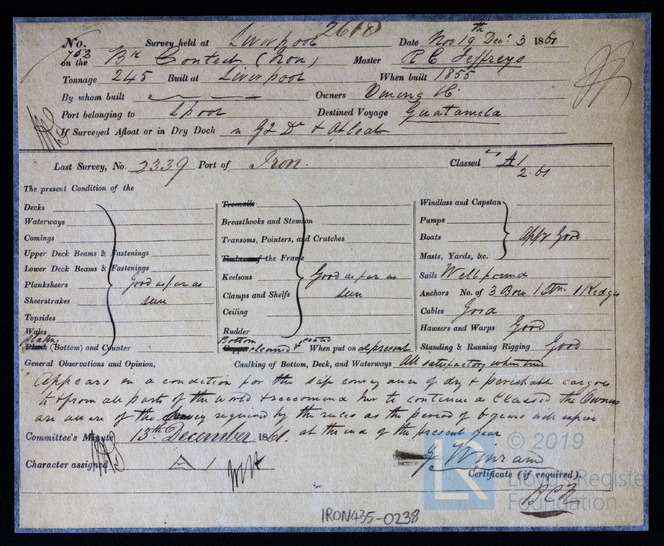 2618
No. 753 Survey held at Liverpool Date Nov 19th Decr 3 1860
on the Bn Contest (Iron) Master R C Jeffreys
Tonnage 245 Built at Liverpool When built 1855
By whom built Owners Vining & Co
Port belonging to Lpool Destined Voyage Guatamela
If Surveyed Afloat or in Dry Dock in Gg Dk & Afloat
Last Survey, No. 2339 Port of Iron. Classed A1
2.61
The present Condition of the
Decks
Waterways
Comings
Upper Deck Beams & Fastenings
Lower Deck Beams & Fastenings
Planksheers Good as far as
Sheerstrakes seen
Topsides
Wales
Plating
Plank (Bottom) and Counter
Treenails
Breasthooks and Stemson
Transoms, Pointers, and Crutches
the Frame
Keelsons Good as far as
Clamps and Shelfs seen
Ceiling
Rudder
Bottom
Copper cleaned & coated When put on at present
Windlass and Capstan
Pumps
Boats appr Good
Masts, Yards, &c.
Sails Well found
Anchors No. of 3 Bow 1 Strm 1 Kedge
Cables Good
Hawsers and Warps Good
Standing & Running Rigging Good
General Observations and Opinion, Caulking of Bottom, Deck, and Waterways All satisfactory when seen
Appears in a condition for the safe conveyance of dry & perishable cargoes
to & from all parts of the world & recommend her to continue as Classed the Owners
are aware of the Survey required by the rules as the period of 6 years will expire
at the end of the present year
Committee's Minute 13th December 1860.
Character assigned A 1
Certificate (if required)
© 2019
Lloyd's Register
Foundation
IRON435-0238